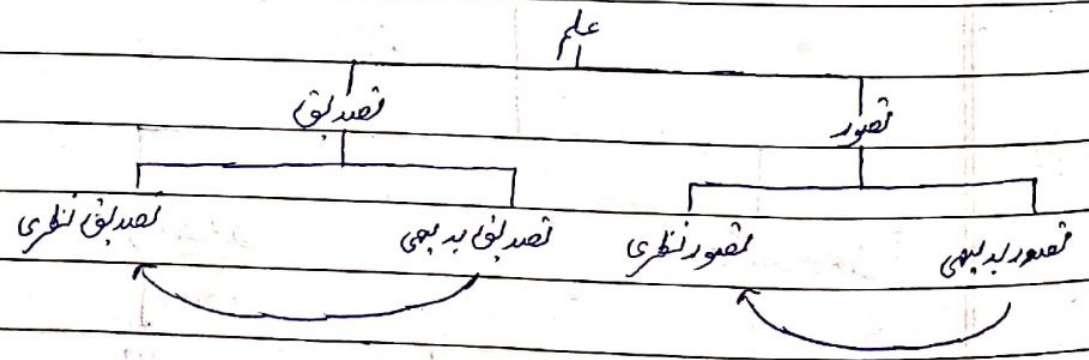 علم
تصور تصدیق
تصور بدیهی تصور نظری تصدیق بدیهی تصدیق نظری